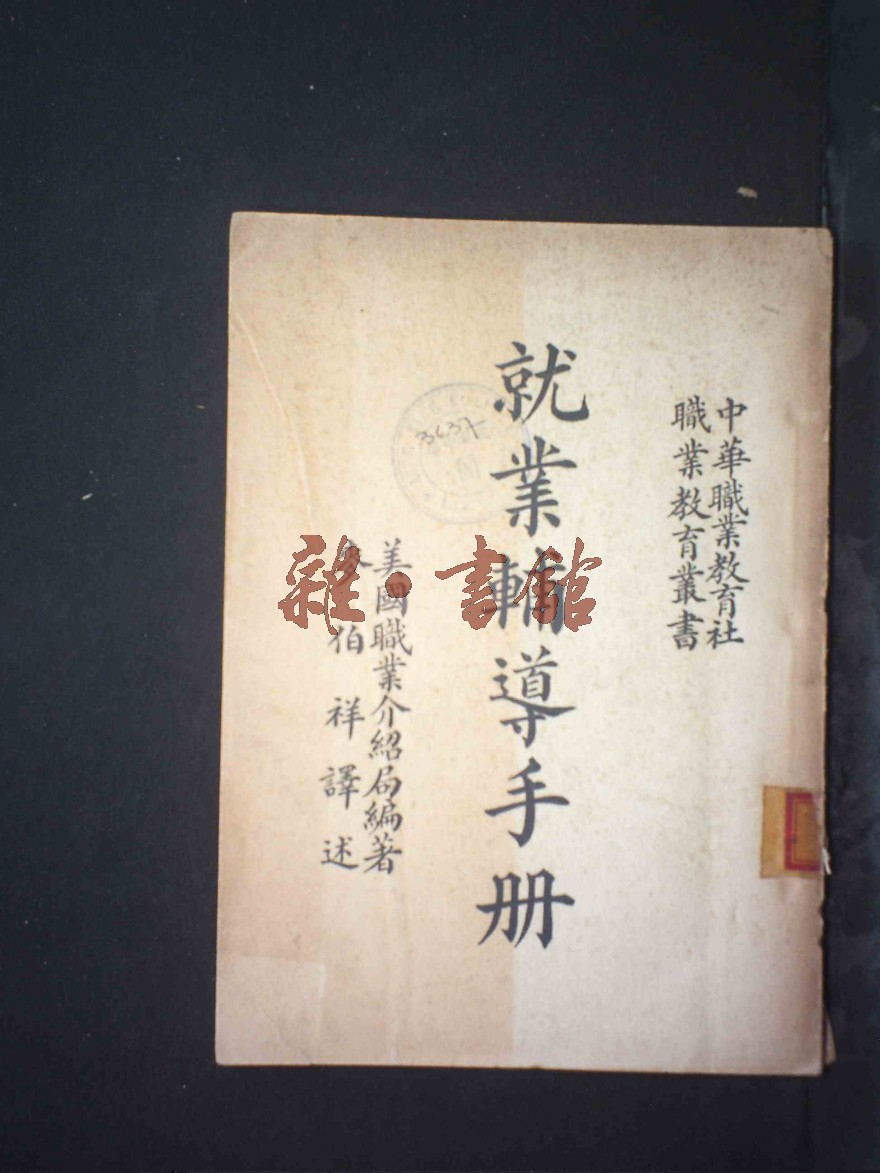 中華職業教育社
職業教育叢書
就業輔導手册
美國職業介紹局編著
伯祥譯述
3637
雜·書館